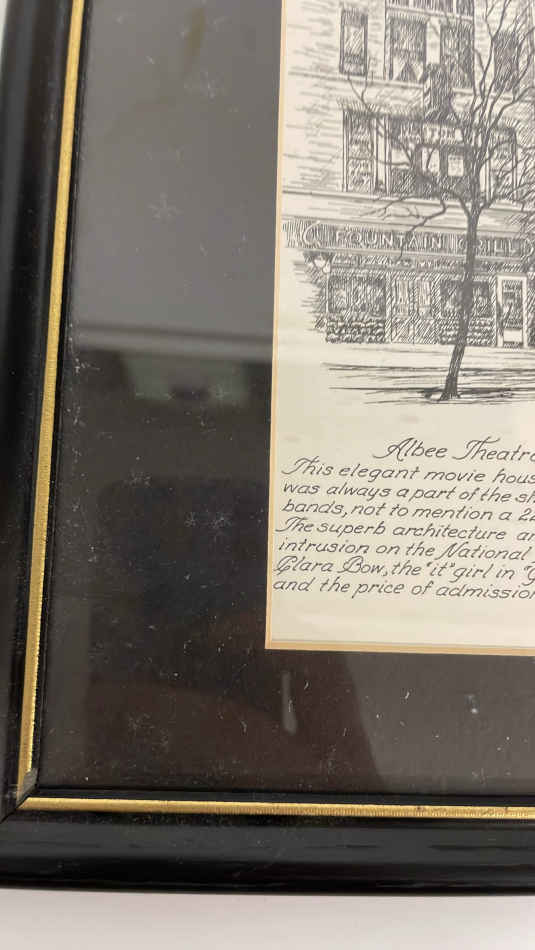 FOUNTAIN GRILL
Albee Theatr
This elegant movie hous
was always a part of the sh
bands, not to mention a 22
The superb architecture an
intrusion on the National
Clara Bow, the "it" girl in "G
and the price of admission